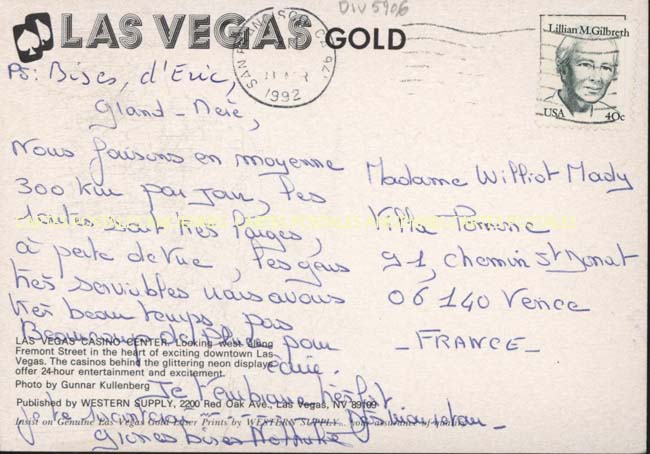 DIV 5906
LAS VEGAS GOLD
SAN FRANCISCO, CA
1992
Lillian M. Gilbreth
USA 40c
PS: Bises, d'Eric,
Grand-Mère,
Nous faisons en moyenne
300 km par jour, les
routes sont très larges,
à perte de vue, les gens
très serviables nous avons
très beau temps, pas
Beaucoup de pour
écrire.
Je t'embrasse très fort
je te
Grosses Bises Nathalie
Madame Williot Mady
Villa
91, chemin St Donat
06140 Vence
_FRANCE_
LAS VEGAS CASINO CENTER. Looking west along
Fremont Street in the heart of exciting downtown Las
Vegas. The casinos behind the glittering neon displays
offer 24-hour entertainment and excitement.
Photo by Gunnar Kullenberg
Published by WESTERN SUPPLY, 2200 Red Oak Ave., Las Vegas, NV 89109
Insist on Genuine Las Vegas Gold Laser Prints by WESTERN SUPPLY.. your assurance of quality